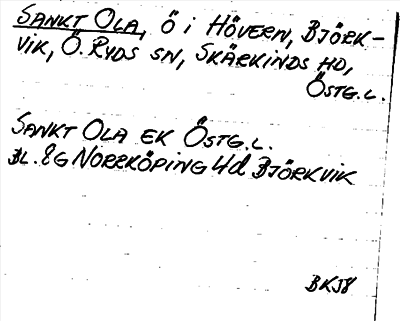 SANKT OLA, Ö i HÖVERN, BJÖRK-
VIK, Ö. RYDS SN, SKÄRKINDS HD,
ÖSTG.L.
SANKT OLA EK ÖSTG.L.
BL. 8G NORRKÖPING 4d BJÖRKVIK
BKJ8